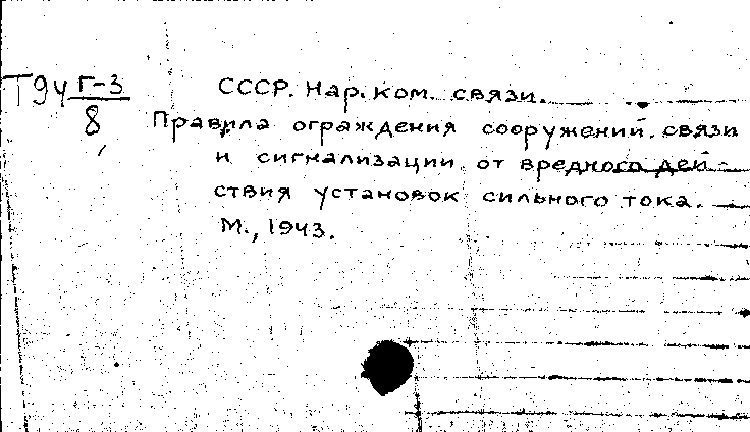 Т94 Г-3/8 СССР. Нар. ком. связи.
Правила ограждения сооружений связи
и сигнализации от вредного дей-
ствия установок сильного тока.
М., 1943.